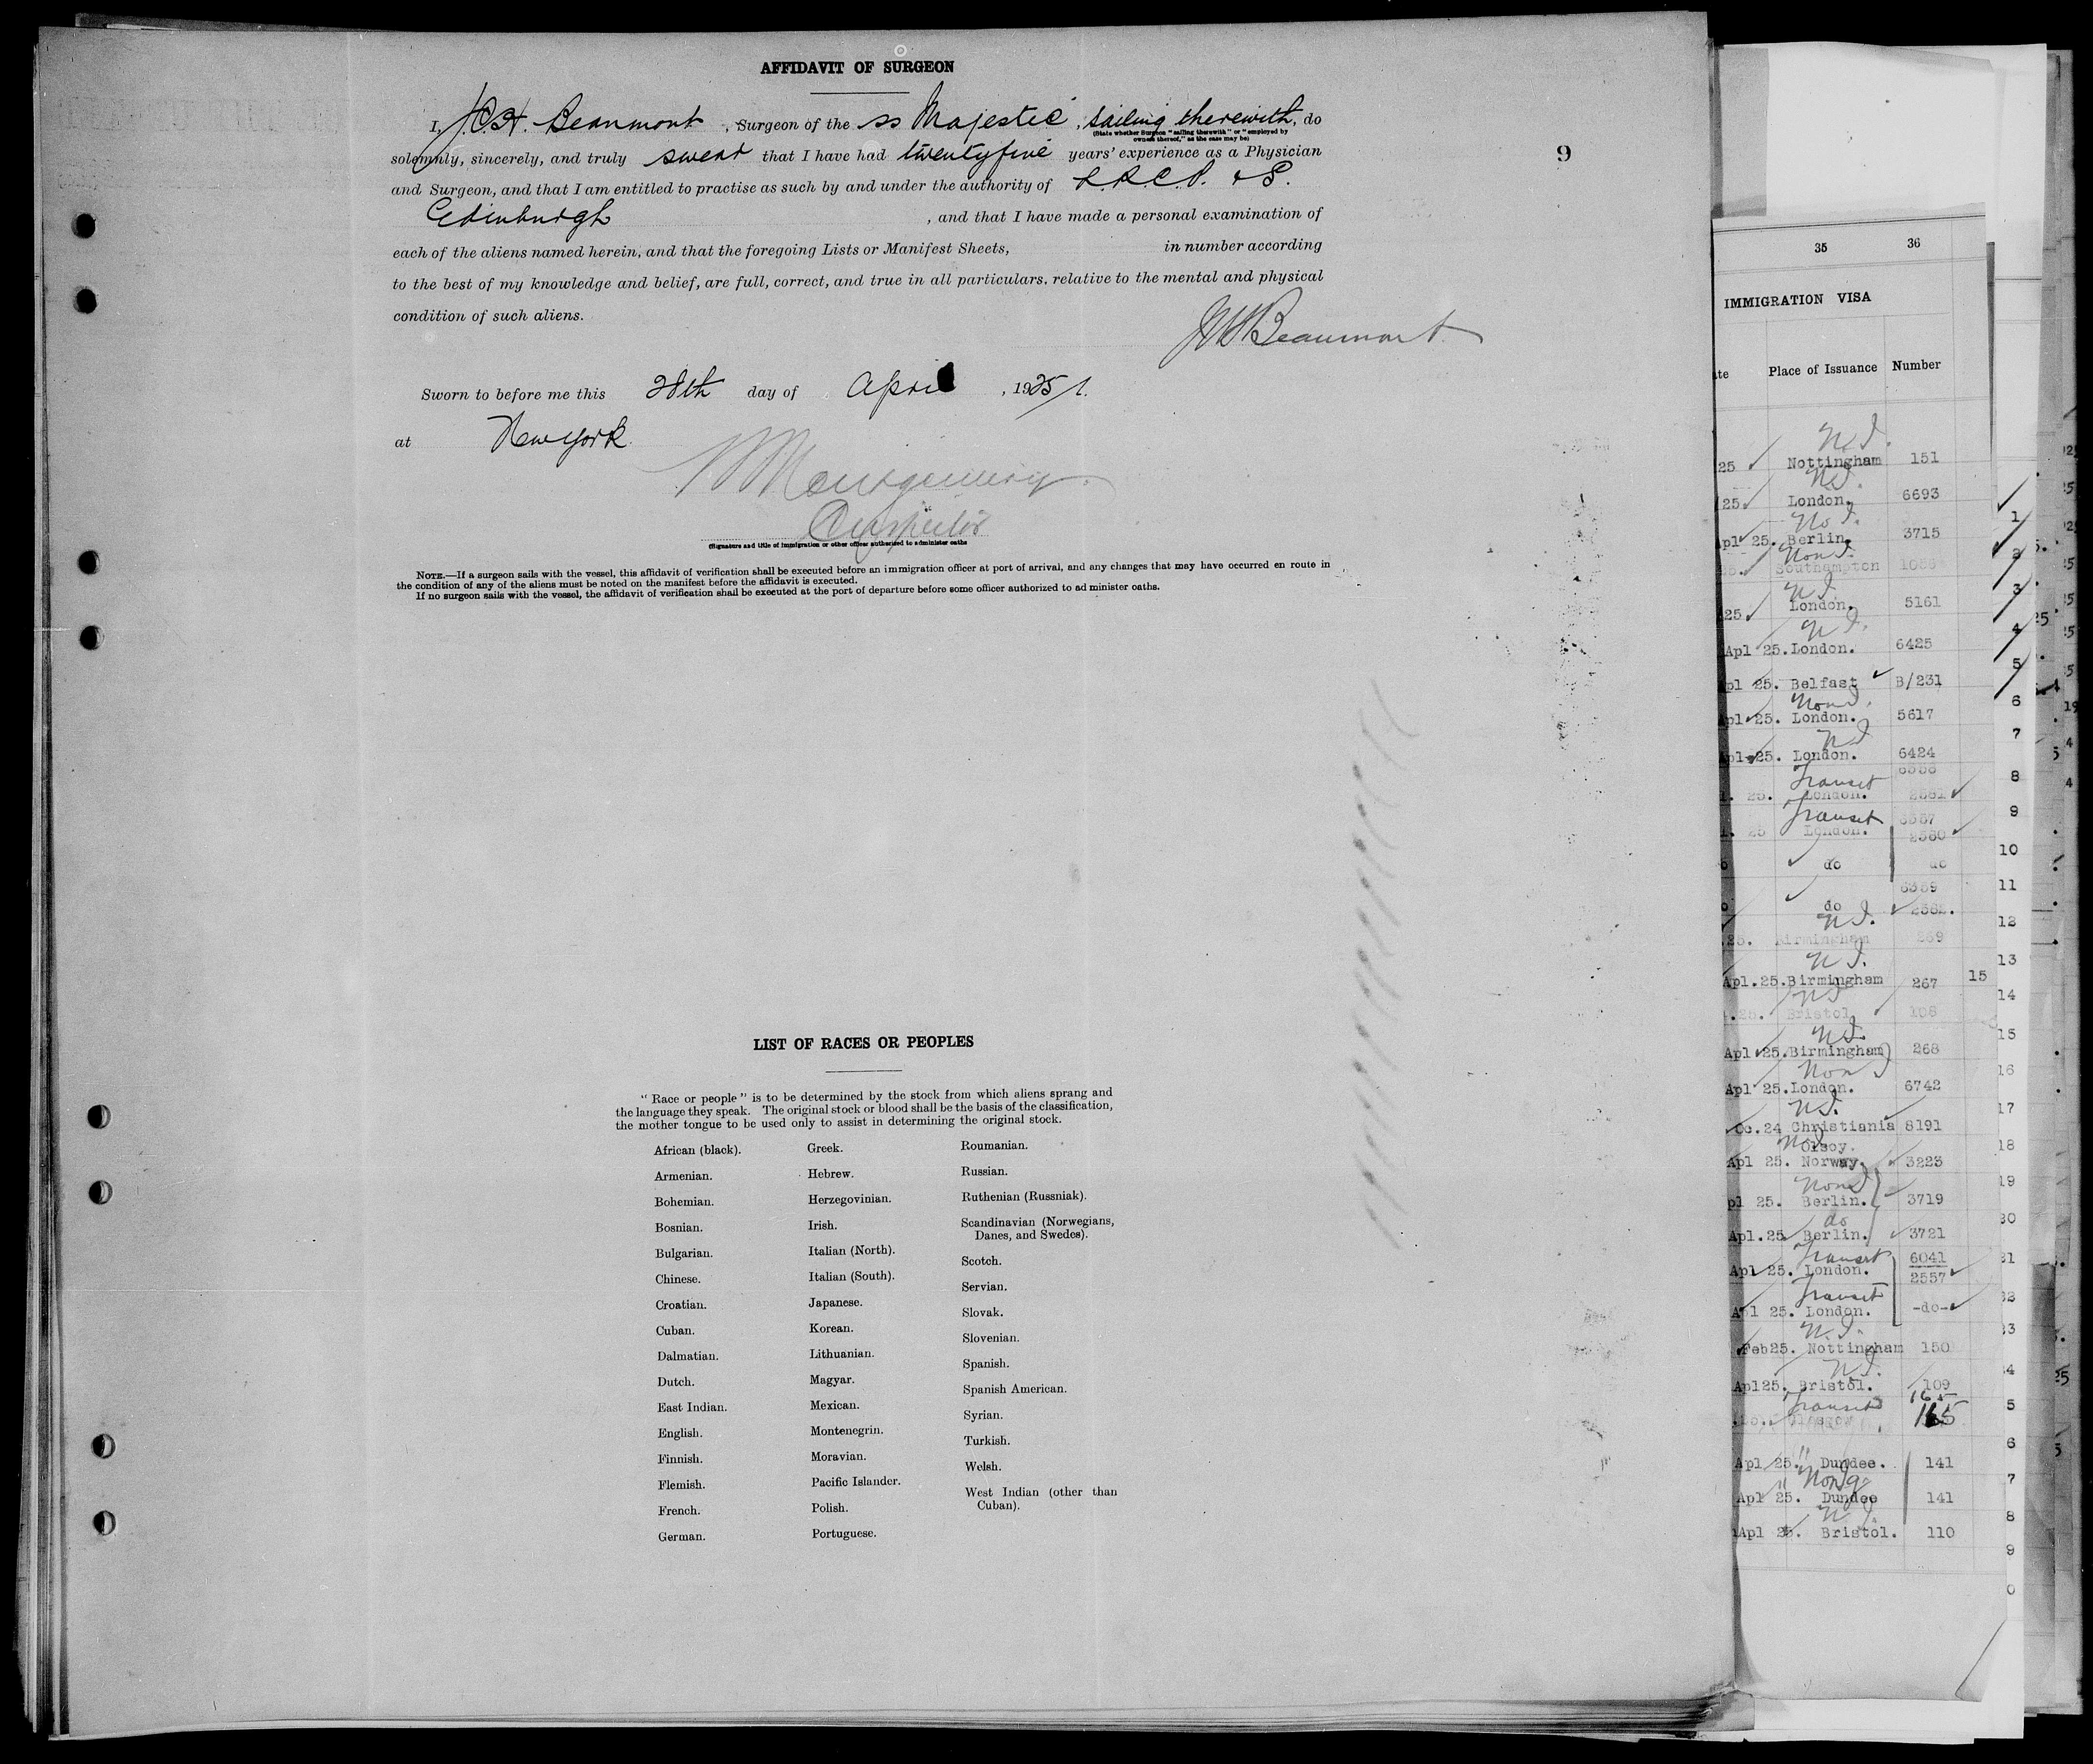 AFFIDAVIT OF SURGEON
I, J.C.H. Beaumont, Surgeon of the ss Majestic, sailing therewith, do
(State whether Surgeon "sailing therewith" or "employed by
owners thereof," as the case may be)
solemnly, sincerely, and truly swear that I have had twentyfive years' experience as a Physician
9
and Surgeon, and that I am entitled to practise as such by and under the authority of L.R.C.P. & S.
Edinburgh, and that I have made a personal examination of
each of the aliens named herein, and that the foregoing Lists or Manifest Sheets, in number according
to the best of my knowledge and belief, are full, correct, and true in all particulars, relative to the mental and physical
condition of such aliens.
Beaumont
Sworn to before me this 28th day of April, 1925
at New York
Montgomery
Inspector
(Signature and title of immigration or other officer authorized to administer oaths
NOTE.—If a surgeon sails with the vessel, this affidavit of verification shall be executed before an immigration officer at port of arrival, and any changes that may have occurred en route in
the condition of any of the aliens must be noted on the manifest before the affidavit is executed.
If no surgeon sails with the vessel, the affidavit of verification shall be executed at the port of departure before some officer authorized to administer oaths.
LIST OF RACES OR PEOPLES
"Race or people" is to be determined by the stock from which aliens sprang and
the language they speak. The original stock or blood shall be the basis of the classification,
the mother tongue to be used only to assist in determining the original stock.
African (black).
Armenian.
Bohemian.
Bosnian.
Bulgarian.
Chinese.
Croatian.
Cuban.
Dalmatian.
Dutch.
East Indian.
English.
Finnish.
Flemish.
French.
German.
Greek.
Hebrew.
Herzegovinian.
Irish.
Italian (North).
Italian (South).
Japanese.
Korean.
Lithuanian.
Magyar.
Mexican.
Montenegrin.
Moravian.
Pacific Islander.
Polish.
Portuguese.
Roumanian.
Russian.
Ruthenian (Russniak).
Scandinavian (Norwegians,
Danes, and Swedes).
Scotch.
Servian.
Slovak.
Slovenian.
Spanish.
Spanish American.
Syrian.
Turkish.
Welsh.
West Indian (other than
Cuban).
35 36
IMMIGRATION VISA
Place of Issuance Number
N.I.
25 Nottingham 151
N.I.
25 London. 6693
Non I.
25. Berlin. 3715
Non I.
Southampton
N.I.
25 London. 5161
N.I.
Apl 25. London. 6425
25. Belfast B/231
Non I.
25. London. 5617
N I
25. London. 6424
Transit
25. London.
Transit
25 London. 2560
do do
do
N I.
25. Birmingham 269
N I.
Apl. 25. Birmingham 267 15
N I
Bristol 108
N I.
Apl 25. Birmingham 268
Non I
Apl 25. London. 6742
N I.
Oc. 24 Christiania 8191
Apl 25. Norway. 3223
Non I
25. Berlin. 3719
do
Apl. 25 Berlin. 3721
Transit 6041
Apl 25. London. 2557
Transit
Apl 25. London. -do-
N.I.
Feb25. Nottingham 150
N I.
Apl25. Bristol. 109
Transit 165
165
Apl 25. " Dundee. 141
Apl 25. Dundee 141
N I
Apl 25. Bristol. 110
1
2
3
4
5
6
7
8
9
10
11
12
13
14
15
16
17
18